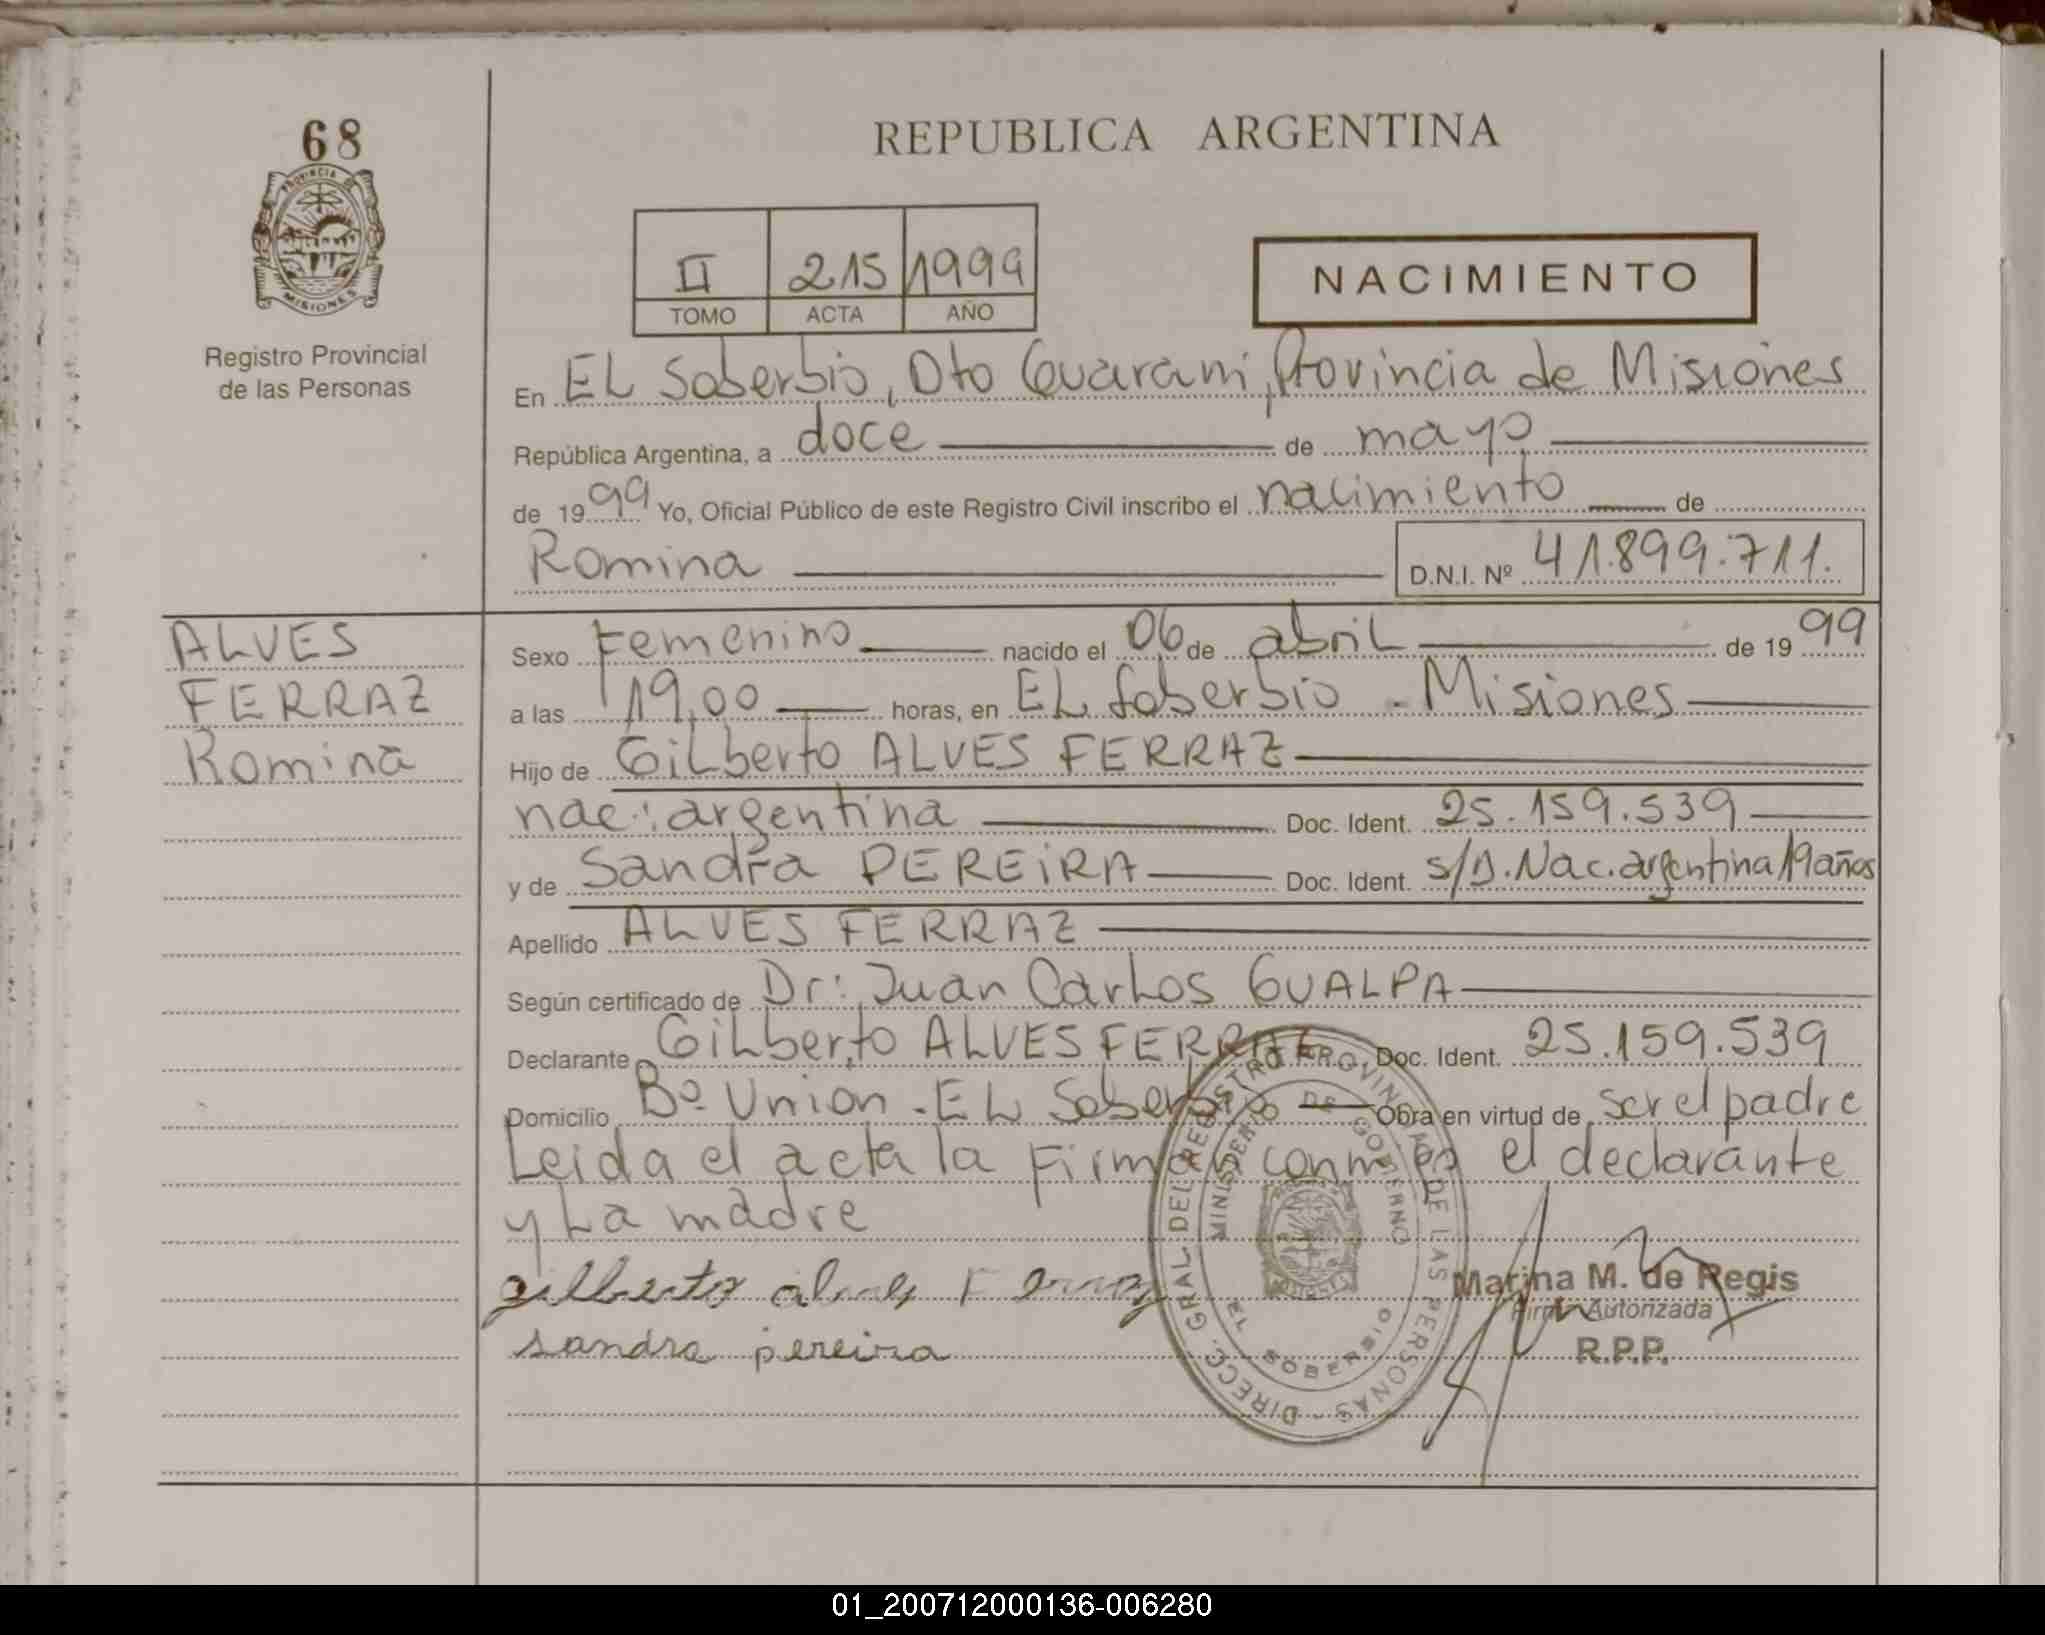 68
PROVINCIA DE
MISIONES
Registro Provincial
de las Personas
REPUBLICA ARGENTINA
II 215 1999
TOMO ACTA AÑO
NACIMIENTO
En EL Soberbio, Dto Guarani, Provincia de Misiones
República Argentina, a doce de mayo
de 1999 Yo, Oficial Público de este Registro Civil inscribo el nacimiento de
Romina D.N.I. Nº 41.899.711.
ALVES
FERRAZ
Romina
Sexo Femenino nacido el 06 de abril de 1999
a las 19,00 horas, en EL Soberbio - Misiones
Hijo de Gilberto ALVES FERRAZ
nac: argentina Doc. Ident. 25.159.539
y de Sandra PEREIRA Doc. Ident. s/D. Nac. argentina 19 años
Apellido ALVES FERRAZ
Según certificado de Dr: Juan Carlos GUALPA
Declarante Gilberto ALVES FERRAZ Doc. Ident. 25.159.539
Domicilio Bº Union - EL Soberbio Obra en virtud de ser el padre
Leida el acta la Firman conmigo el declarante
y La madre
gilberto alves Ferraz
sandra pereira
DIRECC. GRAL DEL REGISTRO PROVINCIAL DE LAS PERSONAS -
MINISTERIO DE GOBIERNO
EL SOBERBIO
Marina M. de Regis
Firma Autorizada
R.P.P.
01_200712000136-006280